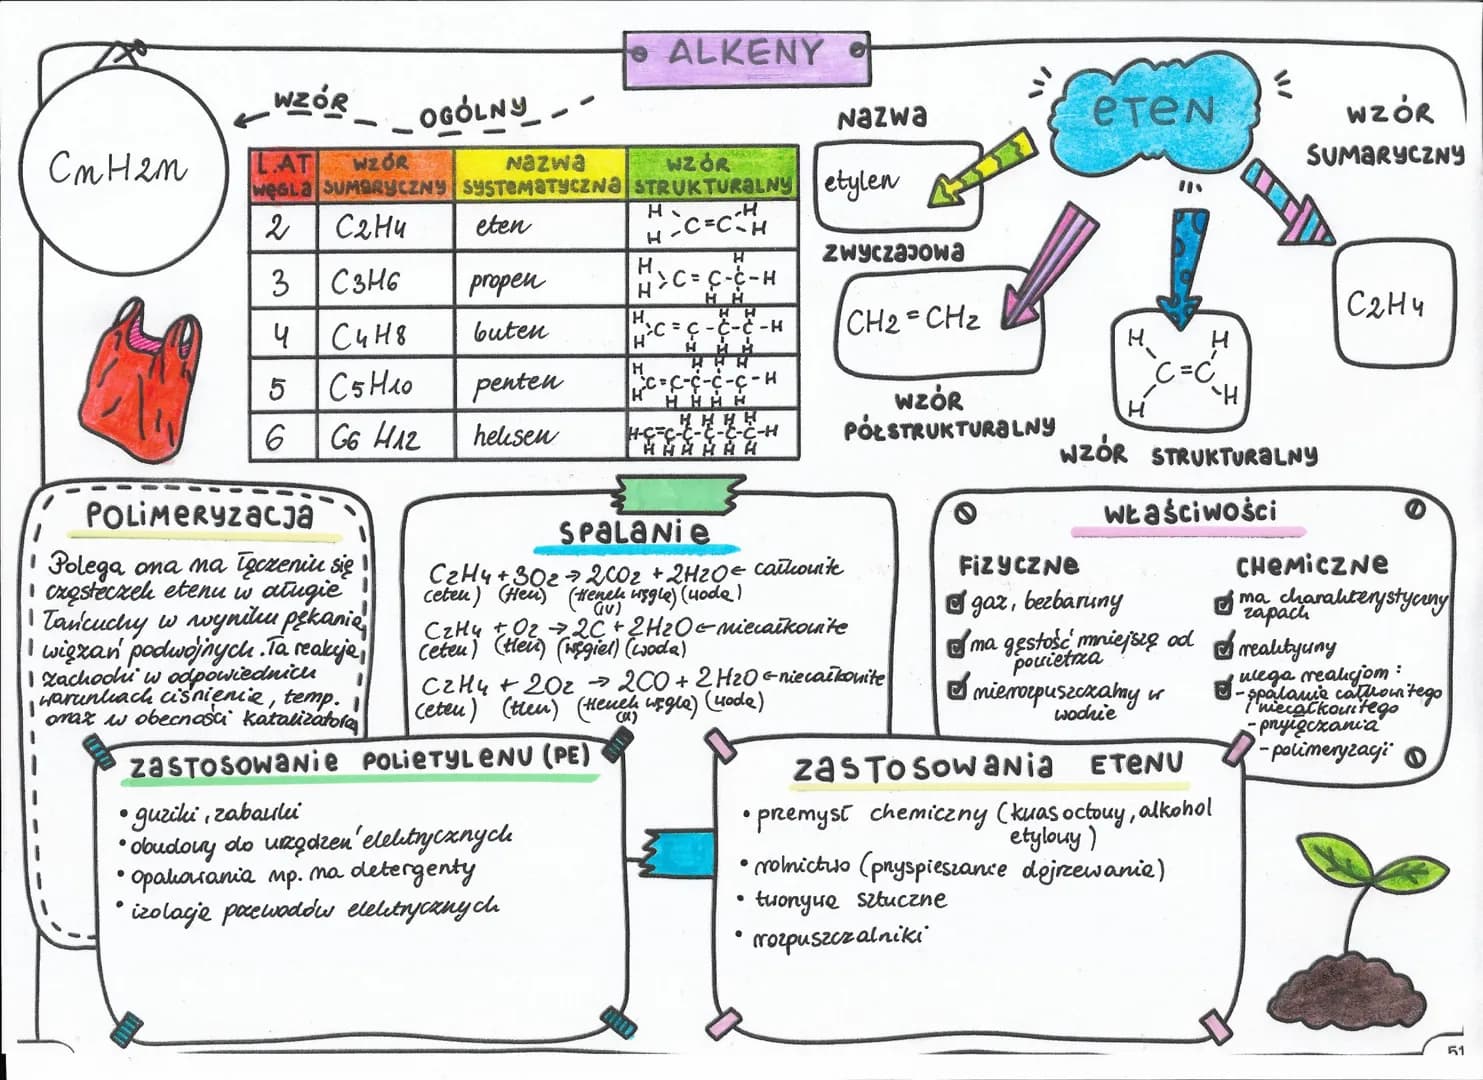 ALKENY
WZÓR OGÓLNY
CnH2n
L.AT WĘGLA
WZÓR SUMARYCZNY
NAZWA SYSTEMATYCZNA
WZÓR STRUKTURALNY
2 C2H4 eten
3 C3H6 propen
4 C4H8 buten
5 C5H10 penten
6 C6H12 heksen
eten
NAZWA
etylen
ZWYCZAJOWA
CH2=CH2
WZÓR
PÓŁSTRUKTURALNY
H H
C=C
H H
WZÓR STRUKTURALNY
WZÓR
SUMARYCZNY
C2H4
POLIMERYZACJA
Polega ona na łączeniu się
cząsteczek etenu w długie
łańcuchy w wyniku pękania
wiązań podwójnych. Ta reakcja
zachodzi w odpowiednich
warunkach ciśnienia, temp.
oraz w obecności katalizatora
SPALANIE
C2H4 + 3O2 → 2CO2 + 2H2O ← całkowite
(eten) (tlen) (tlenek węgla) (woda)
(IV)
C2H4 + O2 → 2C + 2H2O ← niecałkowite
(eten) (tlen) (węgiel) (woda)
C2H4 + 2O2 → 2CO + 2H2O ← niecałkowite
(eten) (tlen) (tlenek węgla) (woda)
(II)
WŁAŚCIWOŚCI
FIZYCZNE
gaz, bezbarwny
ma gęstość mniejszą od
powietrza
nierozpuszczalny w
wodzie
CHEMICZNE
ma charakterystyczny
zapach
reaktywny
ulega reakcjom:
- spalania całkowitego
/ niecałkowitego
- przyłączania
- polimeryzacji
ZASTOSOWANIE POLIETYLENU (PE)
• guziki, zabawki
• obudowy do urządzeń elektrycznych
• opakowania np. na detergenty
• izolacje przewodów elektrycznych
ZASTOSOWANIA ETENU
• przemysł chemiczny (kwas octowy, alkohol
etylowy)
• rolnictwo (przyspieszanie dojrzewania)
• tworzywa sztuczne
• rozpuszczalniki
51